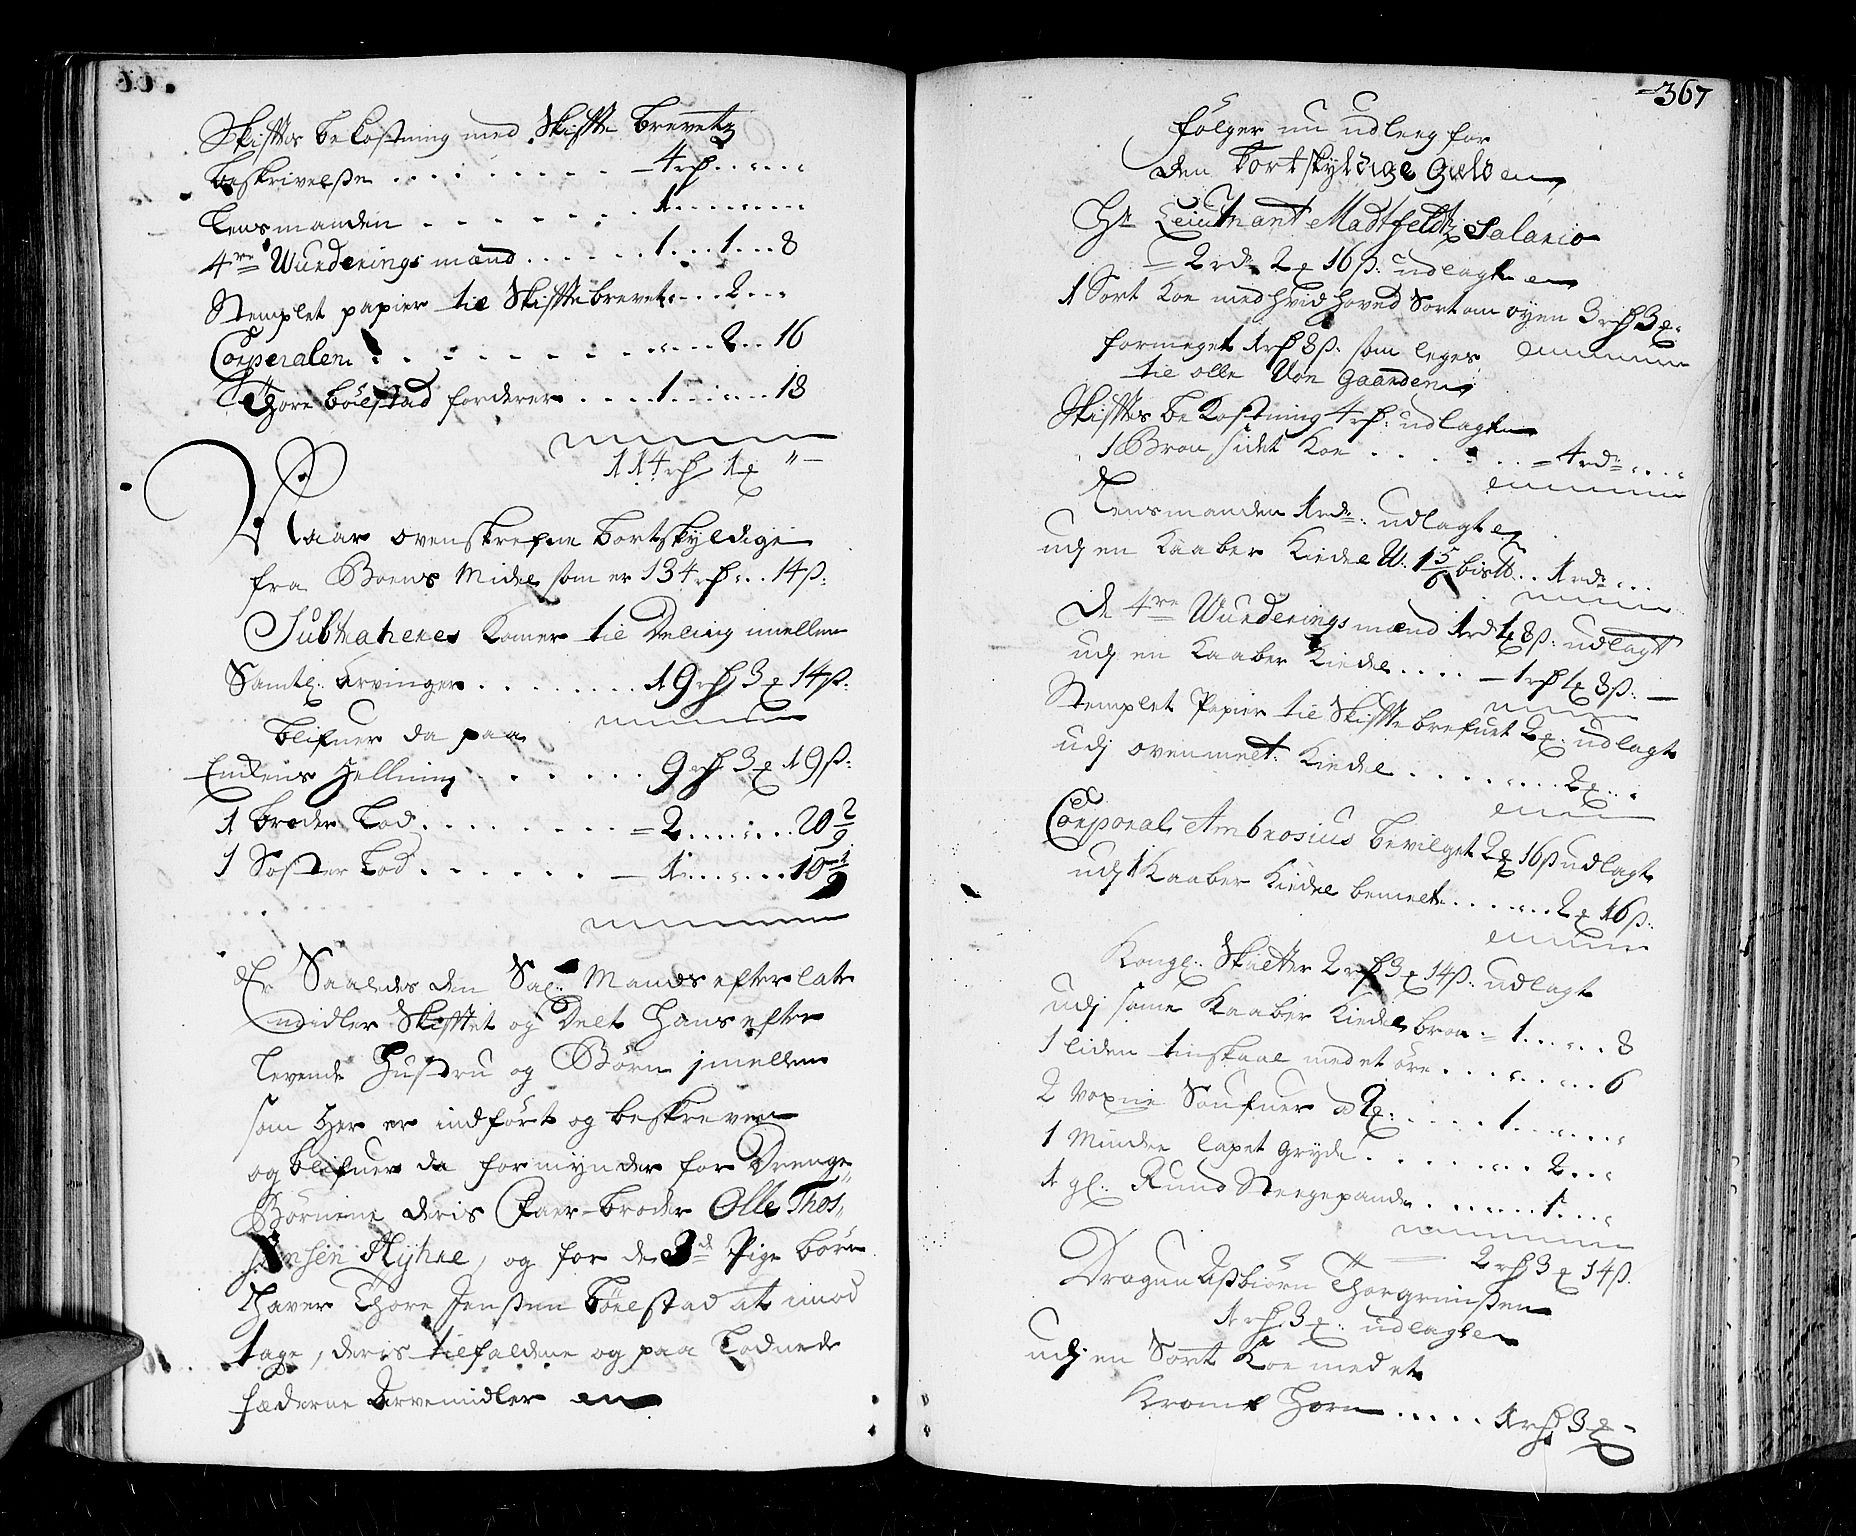 Skifttes bekostning med Skiftte brevetz
beskrivelsse ........ – 4 rß.....
Lensmanden ........ 1.......
4re Wurderings mænd ...... 1...1...8
Stemplet papier til Skifttebrevet....2...
Corporalen ........ 2..16
Thore bölstad forderer .... 1.......18
114 rß 1 ₰ "–
Naar ovenskrefne bortskyldige
fra Boens Midel som er 134 rß... 14 ß:
Subtraheres komer til Deling imellem
Samtl: Arvinger ........ 19 rß 3 ₰ 14 ß:
blifuer da paa
Enkens Helling ....... 9 rß 3 ₰ 19 ß:
1 broder Lod ........ = 2......20 2/9
1 Söster Lod ....... – 1......10 1/9
Er Saaledes den Sal: Mands efterlate
midler Skifttet og Delt Hans efter
levende Hustru og Börn jmellem
som Her er indfört og beskreven
og blifuer da formynder for Drenge
Börnene deris Faer-broder Olle Thos,
jensen Myhre, og for de 3de Pige börn
Haver Thore Jenssen bölstad at imod
tage, deris tilfaldene og paa Lodnede
fæderne Arvemidler en
367
fölger nu udleeg for
den bortskyldige gield en
Hr Leiutnant Madtfeldtz Salario
= 2 rd 2 ₰ 16 ß: udlagt en
1 Sort Koe med hvid hoved Sort om öyen 3 rß 3 ₰.
formeget 1 rß 8 ß: som leges
til olle Von gaarden
Skifttes bekostning 4 rß: udlagt
1 Bron sidet Koe ..... = 4 rd....
Lensmanden 1 rd: udlagt
udj en Kaaber Kiedel W. 1 5/6 bis ℔.. 1 rd...
De 4re Wurderings mænd 1 rd 1 ₰ 8 ß: udlagt
udj en Kaaber Kiedel .... – 1 rß 1 ₰ 8 ß: –
Stemplet Papier til Skifttebrefuet 2 ₰: udlagt
udj ovenmelt: Kiedel ....... 2 ₰...
Corporal Ambrosius bevilget 2 ₰ 16 ß udlagt
udj 1 Kaaber Kiedel bemelt ...... 2 ₰ 16 ß:
Kongl: Skatter 2 rß 3 ₰ 14 ß: udlagt
udj same Kaaber Kiedel, bron = 1......8
1 liden tinskaal med et öre ...... 6
2 voxne Soufuer a 2 ₰: ..... 1......
1 Minder lapet gryde ....... 2...
1 gl: Rund Steegepande ...... 1....
2 rß 3 ₰ 14 ß.
Dragun Assbiörn Thorgrimssen
1 rß 3 ₰: udlagt
udj en Sort Koe med et
Kromt Horn ..... 1 rß 3 ₰ –